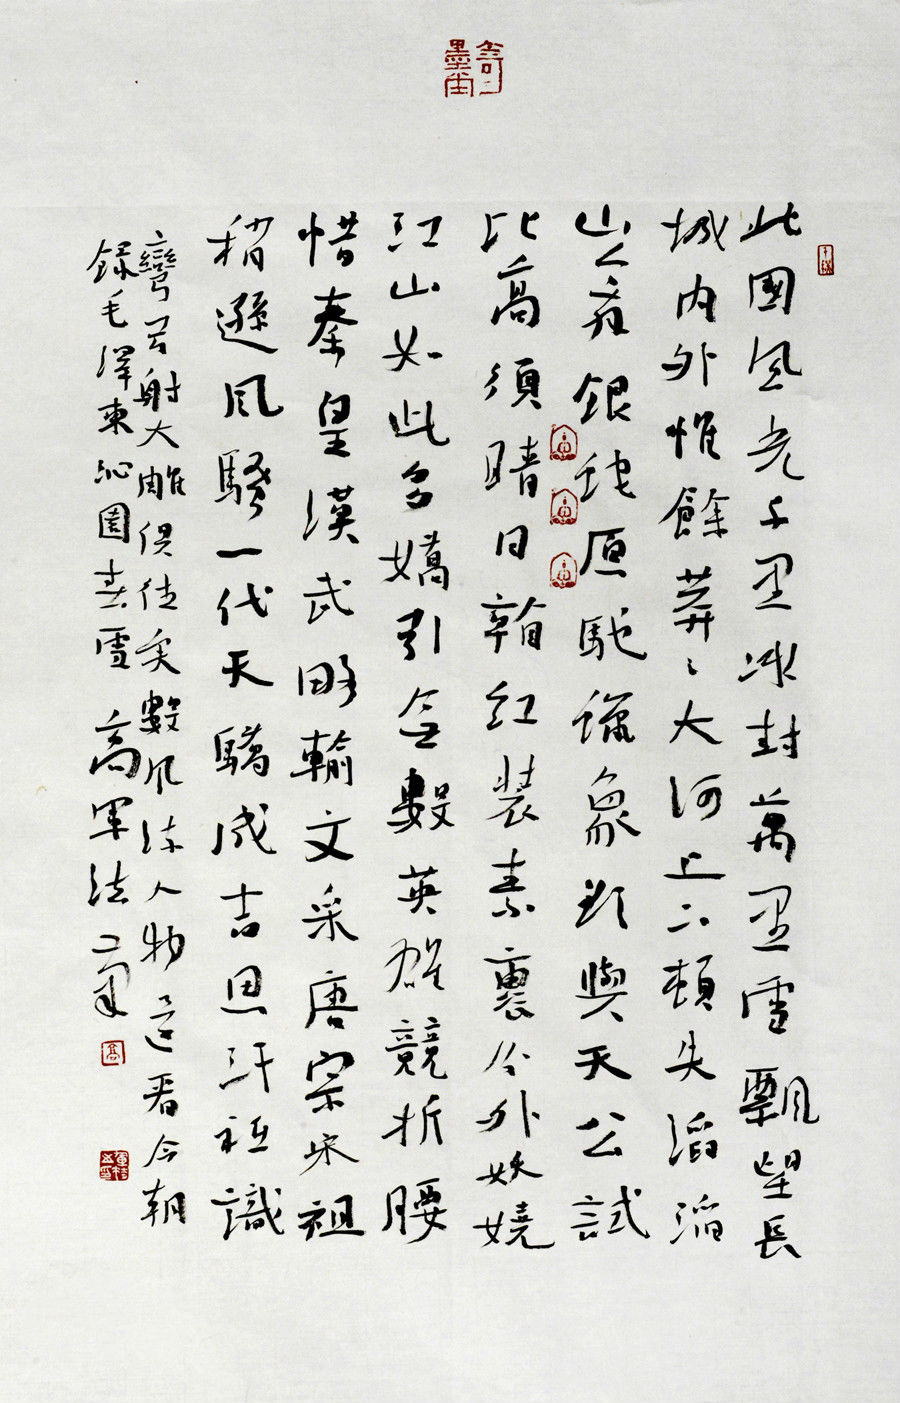 北國風光千里冰封萬里雪飄望長
城內外惟餘莽〻大河上下頓失滔滔
山舞銀蛇原馳蠟象欲與天公試
比高須晴日看紅裝素裹分外妖嬈
江山如此多嬌引無數英雄競折腰
惜秦皇漢武略輸文采唐宗宋祖
稍遜風騷一代天驕成吉思汗祗識
彎弓射大雕俱往矣數風流人物還看今朝
錄毛澤東沁園春雪 高軍法書
高